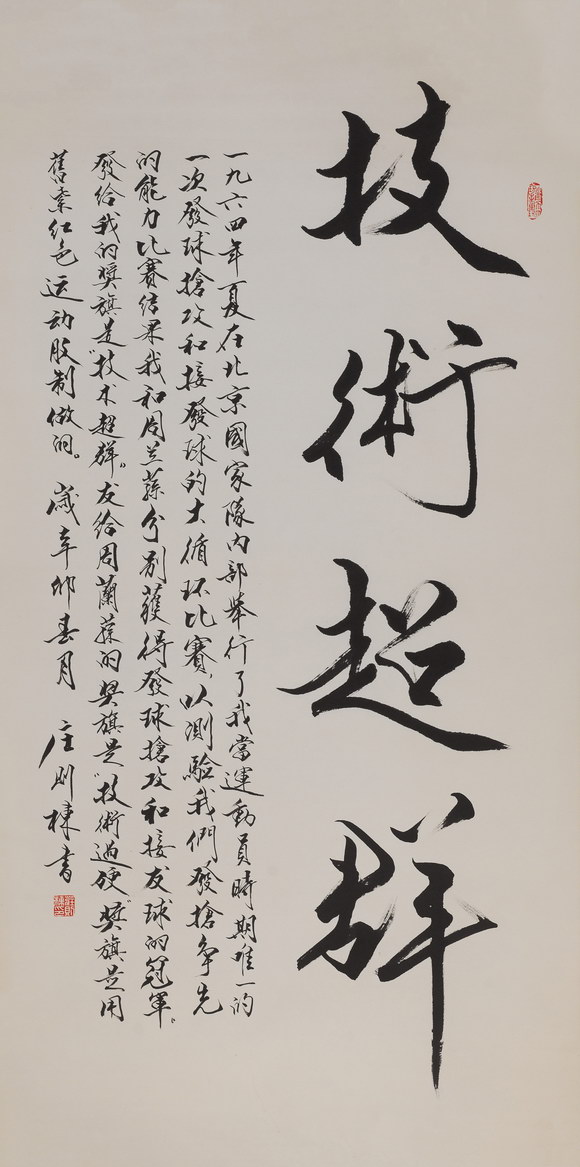 技術超群
一九六四年夏在北京國家隊内部舉行了我當運動員時期唯一的
一次發球搶攻和接發球的大循环比賽，以測驗我們發搶争先
的能力比賽结果我和周兰荪分别獲得發球搶攻和接发球的冠軍。
發给我的獎旗是“技术超群。”发给周蘭蓀的奨旗是“技術過硬”奬旗是用
舊柬红色运动服制做的。歲辛卯春月 庄则棟書